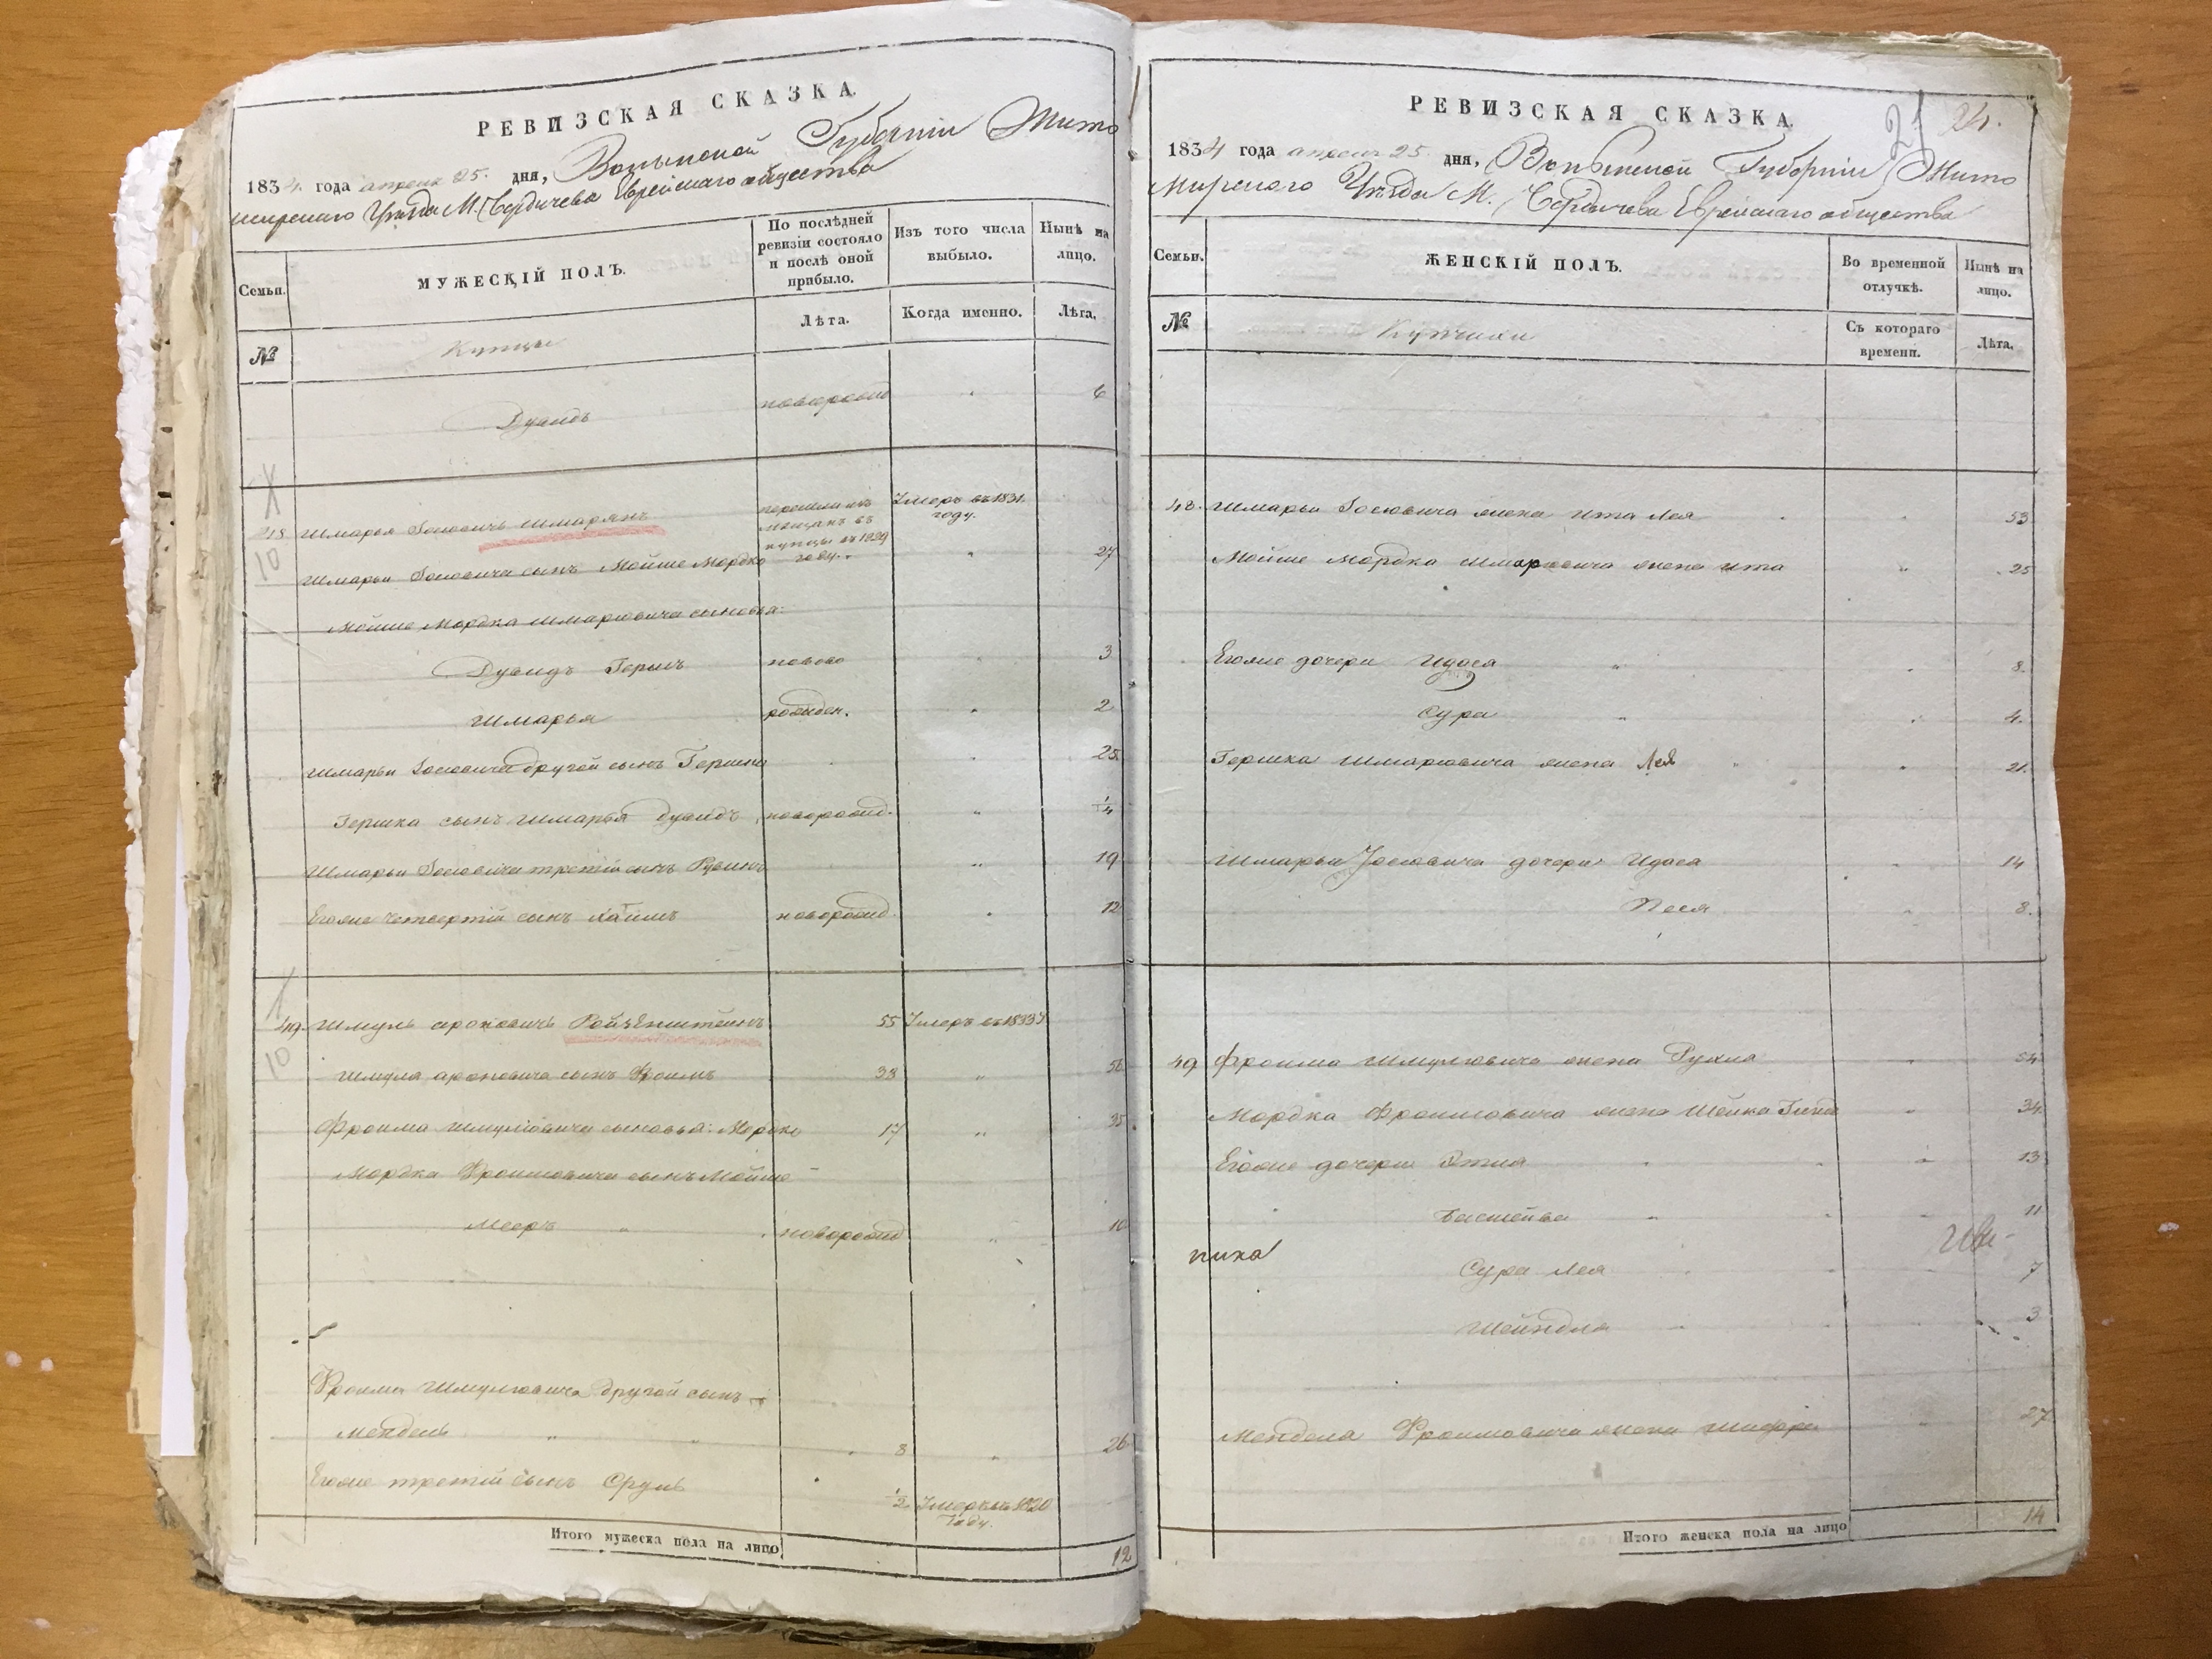 РЕВИЗСКАЯ СКАЗКА.
1834 года апреля 25. дня, Волынской Губерніи Жито
мирскаго Уѣзда М. Бердичева Еврейскаго общества
Семьи.
МУЖЕСКІЙ ПОЛЪ.
По послѣдней ревизіи состояло и послѣ оной прибыло.
Изъ того числа выбыло.
Нынѣ на лицо.
№
Купцы
Лѣта.
Когда именно.
Лѣта.
Дувидъ новорожд " 6
48 Шмарья Іосіовичъ Шмарянъ перешли изъ мещанъ въ купцы въ 1829 году. Умеръ въ 1831 году.
10
Шмарьи Іосіовича сынъ Мойше Мордко " 27
Мойше Мордка Шмаріовича сыновья:
Дувидъ Гершъ ново " 3
Шмарья рожден. " 2
Шмарьи Іосіовича другой сынъ Гершко " 25
Гершка сынъ Шмарья Дувидъ новорожд. " 1/4
Шмарьи Іосіовича третій сынъ Рувинъ " 19
Егоже четвертій сынъ Хаимъ новорожд. " 12
49. Шмуль Ароновичъ Ройзенштейнъ 55 Умеръ въ 1833
10
Шмуля Ароновича сынъ Фроимъ 38 "
Фроима Шмуліовича сыновья: Мордко 17 " 35
Мордка Фроимовича сынъ Мойше
Мееръ " новорожд " 10
Фроима Шмуліовича другой сынъ
Мендель " " 8 " 26
Егоже третій сынъ Сруль 1/2 Умеръ въ 1820 году.
Итого мужеска пола на лицо 12
РЕВИЗСКАЯ СКАЗКА.
21 24.
1834 года апреля 25. дня, Волынской Губерніи Жито
мирскаго Уѣзда М. Бердичева Еврейскаго общества
Семьи.
ЖЕНСКІЙ ПОЛЪ.
Во временной отлучкѣ.
Нынѣ на лицо.
№
Купчихи
Съ котораго времени.
Лѣта.
48. Шмарьи Іосіовича жена Ита Лея " 53
Мойше Мордка Шмаріовича жена Ита " 25
Егоже дочери Идася " " 8.
Сура " " 4.
Гершка Шмаріовича жена Лея " " 21.
Шмарьи Іосіовича дочери Идася " 14
Песя " 8.
49 Фроима Шмуліовича жена Рухля " 54
Мордка Фроимовича жена Шейна " 34
Егоже дочери " " 13
Басшейва " " 11
пика
Сура Лея " " 7
Шейндля " " 3
Менделя Фроимовича жена Шифра " 27
Итого женска пола на лицо 14